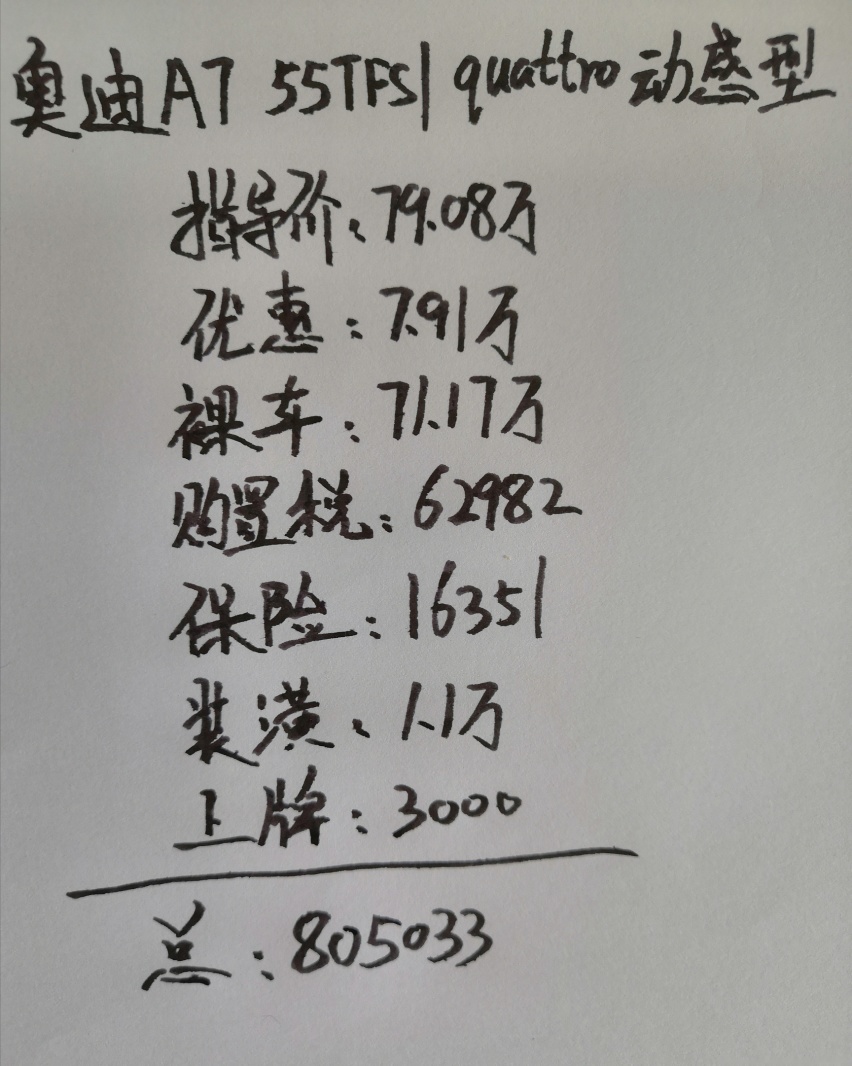 奥迪A7 55TFSI quattro动感型
指导价:79.08万
优惠:7.91万
裸车:71.17万
购置税:62982
保险:16351
装潢:1.1万
上牌:3000
总:805033